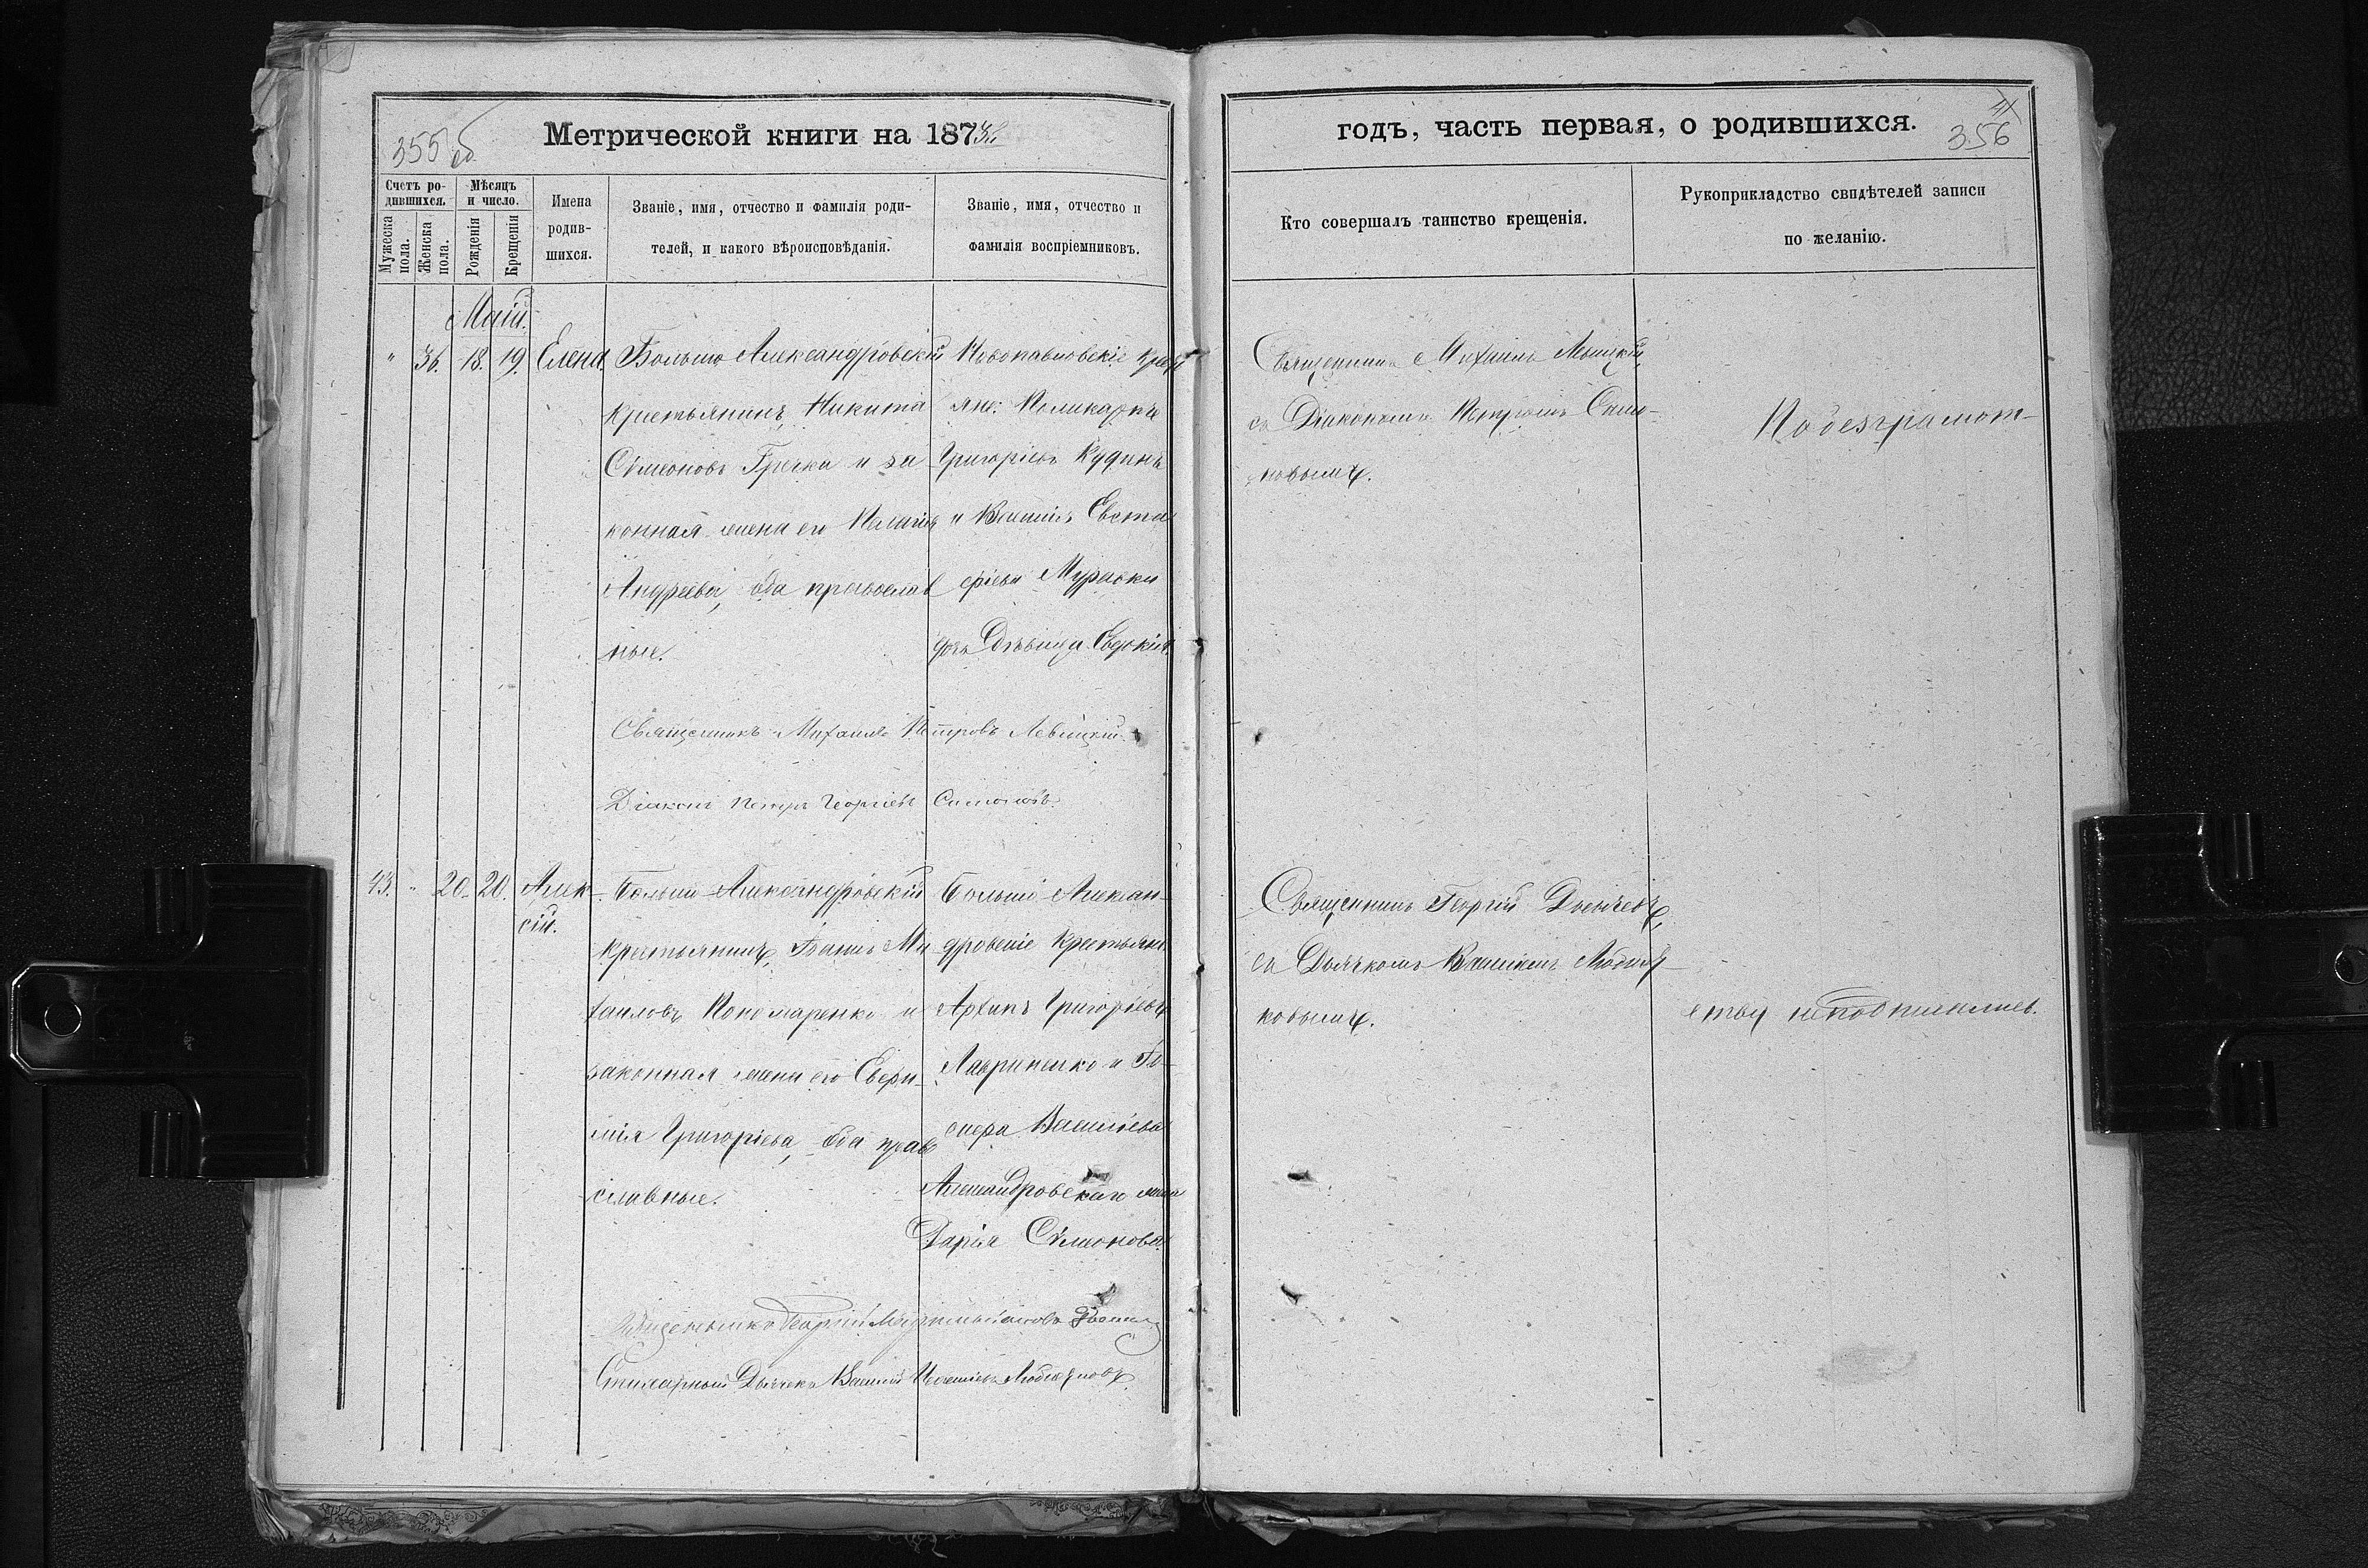 355 об
Метрической книги на 1873.
Счетъ ро-
дившихся.
Мѣсяцъ
и число.
Мужеска пола.
Женска пола.
Рожденія
Крещенія
Имена
родив-
шихся.
Званіе, имя, отчество и фамилія роди-
телей, и какого вѣроисповѣданія.
Званіе, имя, отчество и
фамилія воспріемниковъ.
Маій.
" 36. 18. 19. Елена.
Больше Александровскій
крестьянинъ, Никита
Сѵмеоновъ Гречка и за
конная жена его Пелагія
Андреева, оба православ
ные.
Новопавловскіе крестья
яне: Поликарпъ
Григоріевъ Кудинъ
и Василія Евста
фіева Мураски
дочь Дѣвица Евдокія.
Священникъ Михаилъ Петровъ Левицкій.
Діаконъ Петръ Георгіевъ Симоновъ.
43. " 20. 20. Алек-
сій.
Больше-Александровскій
крестьянинъ, Іоаннъ Ми
хаиловъ Пономаренко и
законная жена его Евфи-
мія Григоріева, оба право
славные.
Больше-Алексан-
дровскіе крестьяни
Архипъ Григорьевъ
Лавриненко и Іо-
сифа Васильева
Александровскаго жена
Дарія Сѵмеонова.
Священникъ Георгій
Дьячекъ Василій
годъ, часть первая, о родившихся.
356
Кто совершалъ таинство крещенія.
Рукоприкладство свидѣтелей записи
по желанію.
Священникъ Михаилъ Левицкій,
съ Діакономъ Петромъ Симо-
новымъ.
По безграмот-
Священникъ Георгій
съ Дьячкомъ Василіемъ
ковымъ.
ству неподписались.